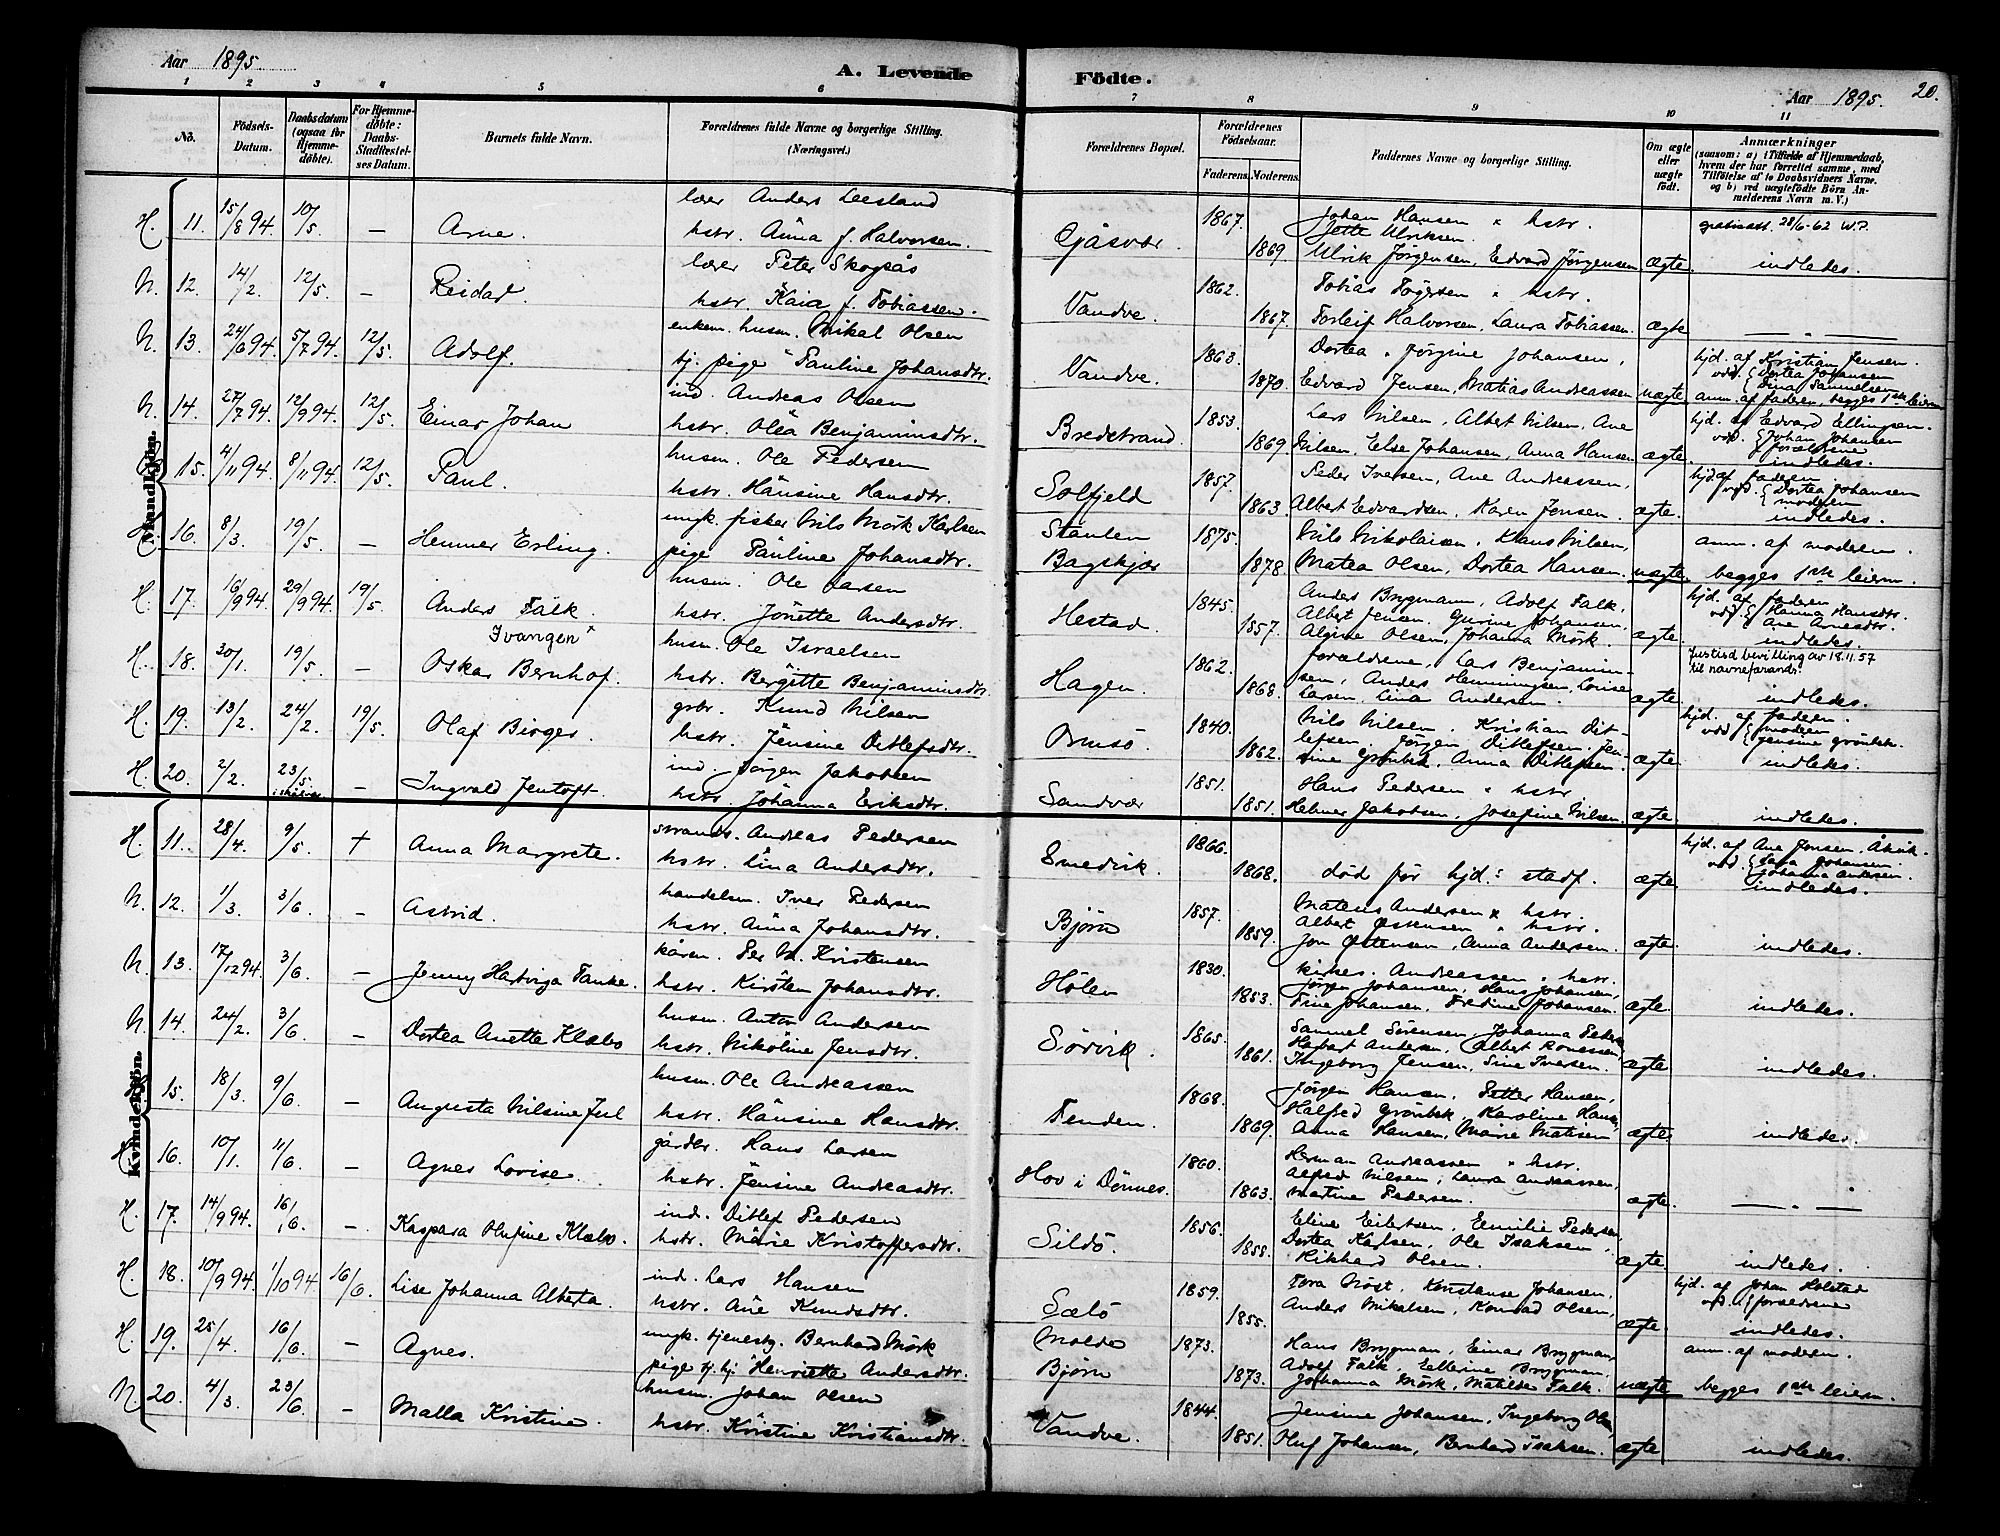 Aar 1895.
A. Levende Födte.
Aar 1895. 20.
1 2 3 4 5 6 7 8 9 10 11
No.
Födsels-Datum.
Daabsdatum (ogsaa for Hjemme-döbte).
For Hjemme-döbte: Daabs-Stadfæstel-ses Datum.
Barnets fulde Navn.
Forældrenes fulde Navne og borgerlige Stilling. (Næringsvei.)
Forældrenes Bopæl.
Forældrenes Födselsaar.
Faderens. Moderens.
Faddernes Navne og borgerlige Stilling.
Om ægte eller uægte födt.
Anmærkninger
(saasom: a) i Tilfælde af Hjemmedaab,
hvem der har forrettet samme, med
Tilföielse af to Daabsvidners Navne.
og b) ved uægtefödte Börn An-
melderens Navn m. V.)
Mandkjön.
lærer Anders Leesland
H. 11. 15/8 94 10/5 — Arne. hstr. Anna f. Halvorsen.
Gjåsvær. 1867. 1869.
Johan Hansen " hstr.
Jette Ulriksen.
Ulrik Jörgensen, Edvard Jörgensen ægte.
28/6-62 W.P.
indledes.
lærer Peter Skogsås
N. 12. 14/2. 12/5. — Reidar. hstr. Kaia f. Tobiassen.
Vandve. 1862. 1867.
Tobias Tögersen " hstr.
Torleif Halvorsen, Laura Tobiassen. ægte — " —
enkem. husm. Mikal Olsen
N. 13. 24/6 94. 5/7 94. 12/5. Adolf. tj. pige Pauline Johansdtr.
Vandve. 1863. 1870.
Dortea " Jörgine Johansen,
Edvard Jensen, Matias Andreassen uægte
hjd. af Kristian Jensen.
vdd. Dortea Johansen
Dina Samuelsen
anm. af faderen, begges 1ste leierm
ind. Andreas Olsen
N. 14. 27/7 94. 12/9 94. 12/5. Einar Johan hstr. Olea Benjaminsdtr.
Bredstrand. 1853. 1869.
Lars Nilsen, Albert Nilsen, Ane
Nilsen, Else Johansen, Anna Hansen ægte.
hjd. af Edvard Ellingsen.
vdd. Johan Johansen
forældrene
indledes.
husm. Ole Pedersen
15. 4/11 94 8/11 94. 12/5. Paul. hstr. Hansine Hansdtr.
Solfjeld 1857. 1863.
Peder Iversen, Ane Andreassen,
Albert Edvardsen, Karen Jensen. ægte.
hjd. af faderen
vdd. Dortea Johansen
moderen
indledes.
ungk. fisker Nils Mörk Karlsen
16. 8/3. 19/5. — Hemmer Erling. pige Pauline Johansdtr.
Stanlen
Bagskjær 1875. 1878.
Nils Nikolaisen, Klaus Nilsen,
Matea Olsen, Dortea Hansen. uægte.
anm. af moderen.
begges 1ste leierm.
husm. Ole Larsen
H. 17. 16/9 94. 29/9 94. 19/5. Anders Falk. hstr. Jonette Andersdtr.
Hestad. 1845. 1857.
Anders Brygmann, Adolf Falk,
Albert Jensen, Gurine Johansen,
Algine Olsen, Johanna Mörk. ægte.
hjd. af faderen
vdd. Hanna Hansdtr.
Ane Arnesdtr.
indledes.
Ivangen"
husm. Ole Israelsen
H. 18. 20/1. 19/5. — Oskar Bernhof. hstr. Bergitte Benjaminsdtr.
Hagen. 1862. 1868.
forældrene, Lars Benjamin-
sen, Anders Henningsen, Lovise
Larsen, Lina Andersen. ægte.
Justisd bevilling av 18.11.57
til navneforandr.
indledes.
gbr. Knud Nilsen
H. 19. 13/2. 24/2. 19/5. Olaf Birger. hstr. Jensine Ditlefsdtr.
Omsö. 1840. 1862.
Nils Nilsen, Kristian Dit-
lefsen, Jörgen Ditlefsen, Jen-
sine Grönbek, Anna Ditlefsen. ægte.
hjd. af faderen.
vdd moderen
Jensine Grönbek.
indledes.
ind. Jörgen Jakobsen
H. 20. 2/2. 23/5. — Ingvald Jentoft. hstr. Johanna Eriksdtr.
Sandvær 1851. 1851.
Hans Pedersen " hstr
Helmer Jakobsen, Josefine Nilsen. ægte. indledes.
Kvindekjön.
strands. Andreas Pedersen
H. 11. 28/4. 9/5. + Anna Margrete. hstr. Lina Andersdtr.
Smedvik. 1866. 1868.
död för hjd.s stadf. ægte.
hjd. af Ane Jensen, Åkvik.
vdd. Lava Johansen.
Johanna Andersen.
indledes.
handelsm. Iver Pedersen
N. 12. 1/3. 3/6. — Astrid. hstr. Anna Johansdtr.
Björn 1857. 1859.
Mateus Andersen " hstr.
Albert Östensen " hstr.
Jon Östensen, Anna Andersen. ægte. indledes.
kåren. Per M. Kristensen
N. 13. 17/12 94. 3/6. — Jenny Hartviga Tanke. hstr. Kirsten Johansdtr.
Hölen 1830. 1853.
kirkes. Andreassen " hstr.
Jörgen Johansen, Hans Johansen,
Trine Johansen, Fredine Johansen. ægte. indledes.
husm. Anton Andersen
N. 14. 24/2. 3/6. — Dortea Anette Klæbo hstr. Nikoline Jensdtr.
Sörvik. 1865. 1861.
Samuel Sörensen, Johanna Peders
Andersen, Albert
Ingeborg Jensen, Sine Iversen. ægte. indledes.
husm. Ole Andreassen
15. 18/3. 9/6. — Augusta Nilsine Jul hstr. Hansine Hansdtr.
Tenden. 1868. 1869.
Jörgen Hansen, Petter Hansen,
Halfred Grönbek, Karoline Hansen,
Anna Hansen, Marie Matisen ægte. indledes.
gårdbr. Hans Larsen
16. 10/1. 11/6. — Agnes Lovise. hstr. Jensine Andreasdtr.
Hov i Dönnes. 1860. 1863.
Herman Andreassen " hstr.
Alfred Nilsen, Laura Andreassen,
Martine Pedersen. ægte. — " —
ind. Ditlef Pedersen
H. 17. 14/9 94. 16/6. — Kaspara Olufine Klæbo. hstr. Marie Kristoffersdtr.
Sildö. 1856. 1858.
Eline Eilertsen, Emilie Pedersen,
Dortea Karlsen, Ole Isaksen,
Rikhard Olsen. ægte. indledes.
ind. Lars Hansen
H. 18. 10/9 94 1/10 94 16/6. Lise Johanna Alberta. hstr. Ane Knudsdtr.
Sælö 1859. 1855.
Tora Möst, Konstanse Johansen,
Anders Mikalsen, Konrad Olsen, ægte.
hjd. af Johan Holstad
vdd. forældrene
indledes.
ungk. tjenestg. Bernhard Mörk
H. 19. 25/4. 16/6. — Agnes. pige tj. hj. Henriette Andersdtr.
Molde
Björn 1873. 1873.
Hans Brygman, Einar Brygman,
Adolf Falk, Ellerine Brygman,
Johanna Mörk, Matilde Falk. uægte.
anm. af moderen.
begges 1ste leierm.
husm. Johan Olsen
N. 20. 4/3. 23/6. — Malla Kristine. hstr. Kristine Kristiansdtr.
Vandve. 1844. 1851.
Jensine Johansen, Ingeborg Olsen,
Oluf Johansen, Bernhard Isaksen. ægte indledes.